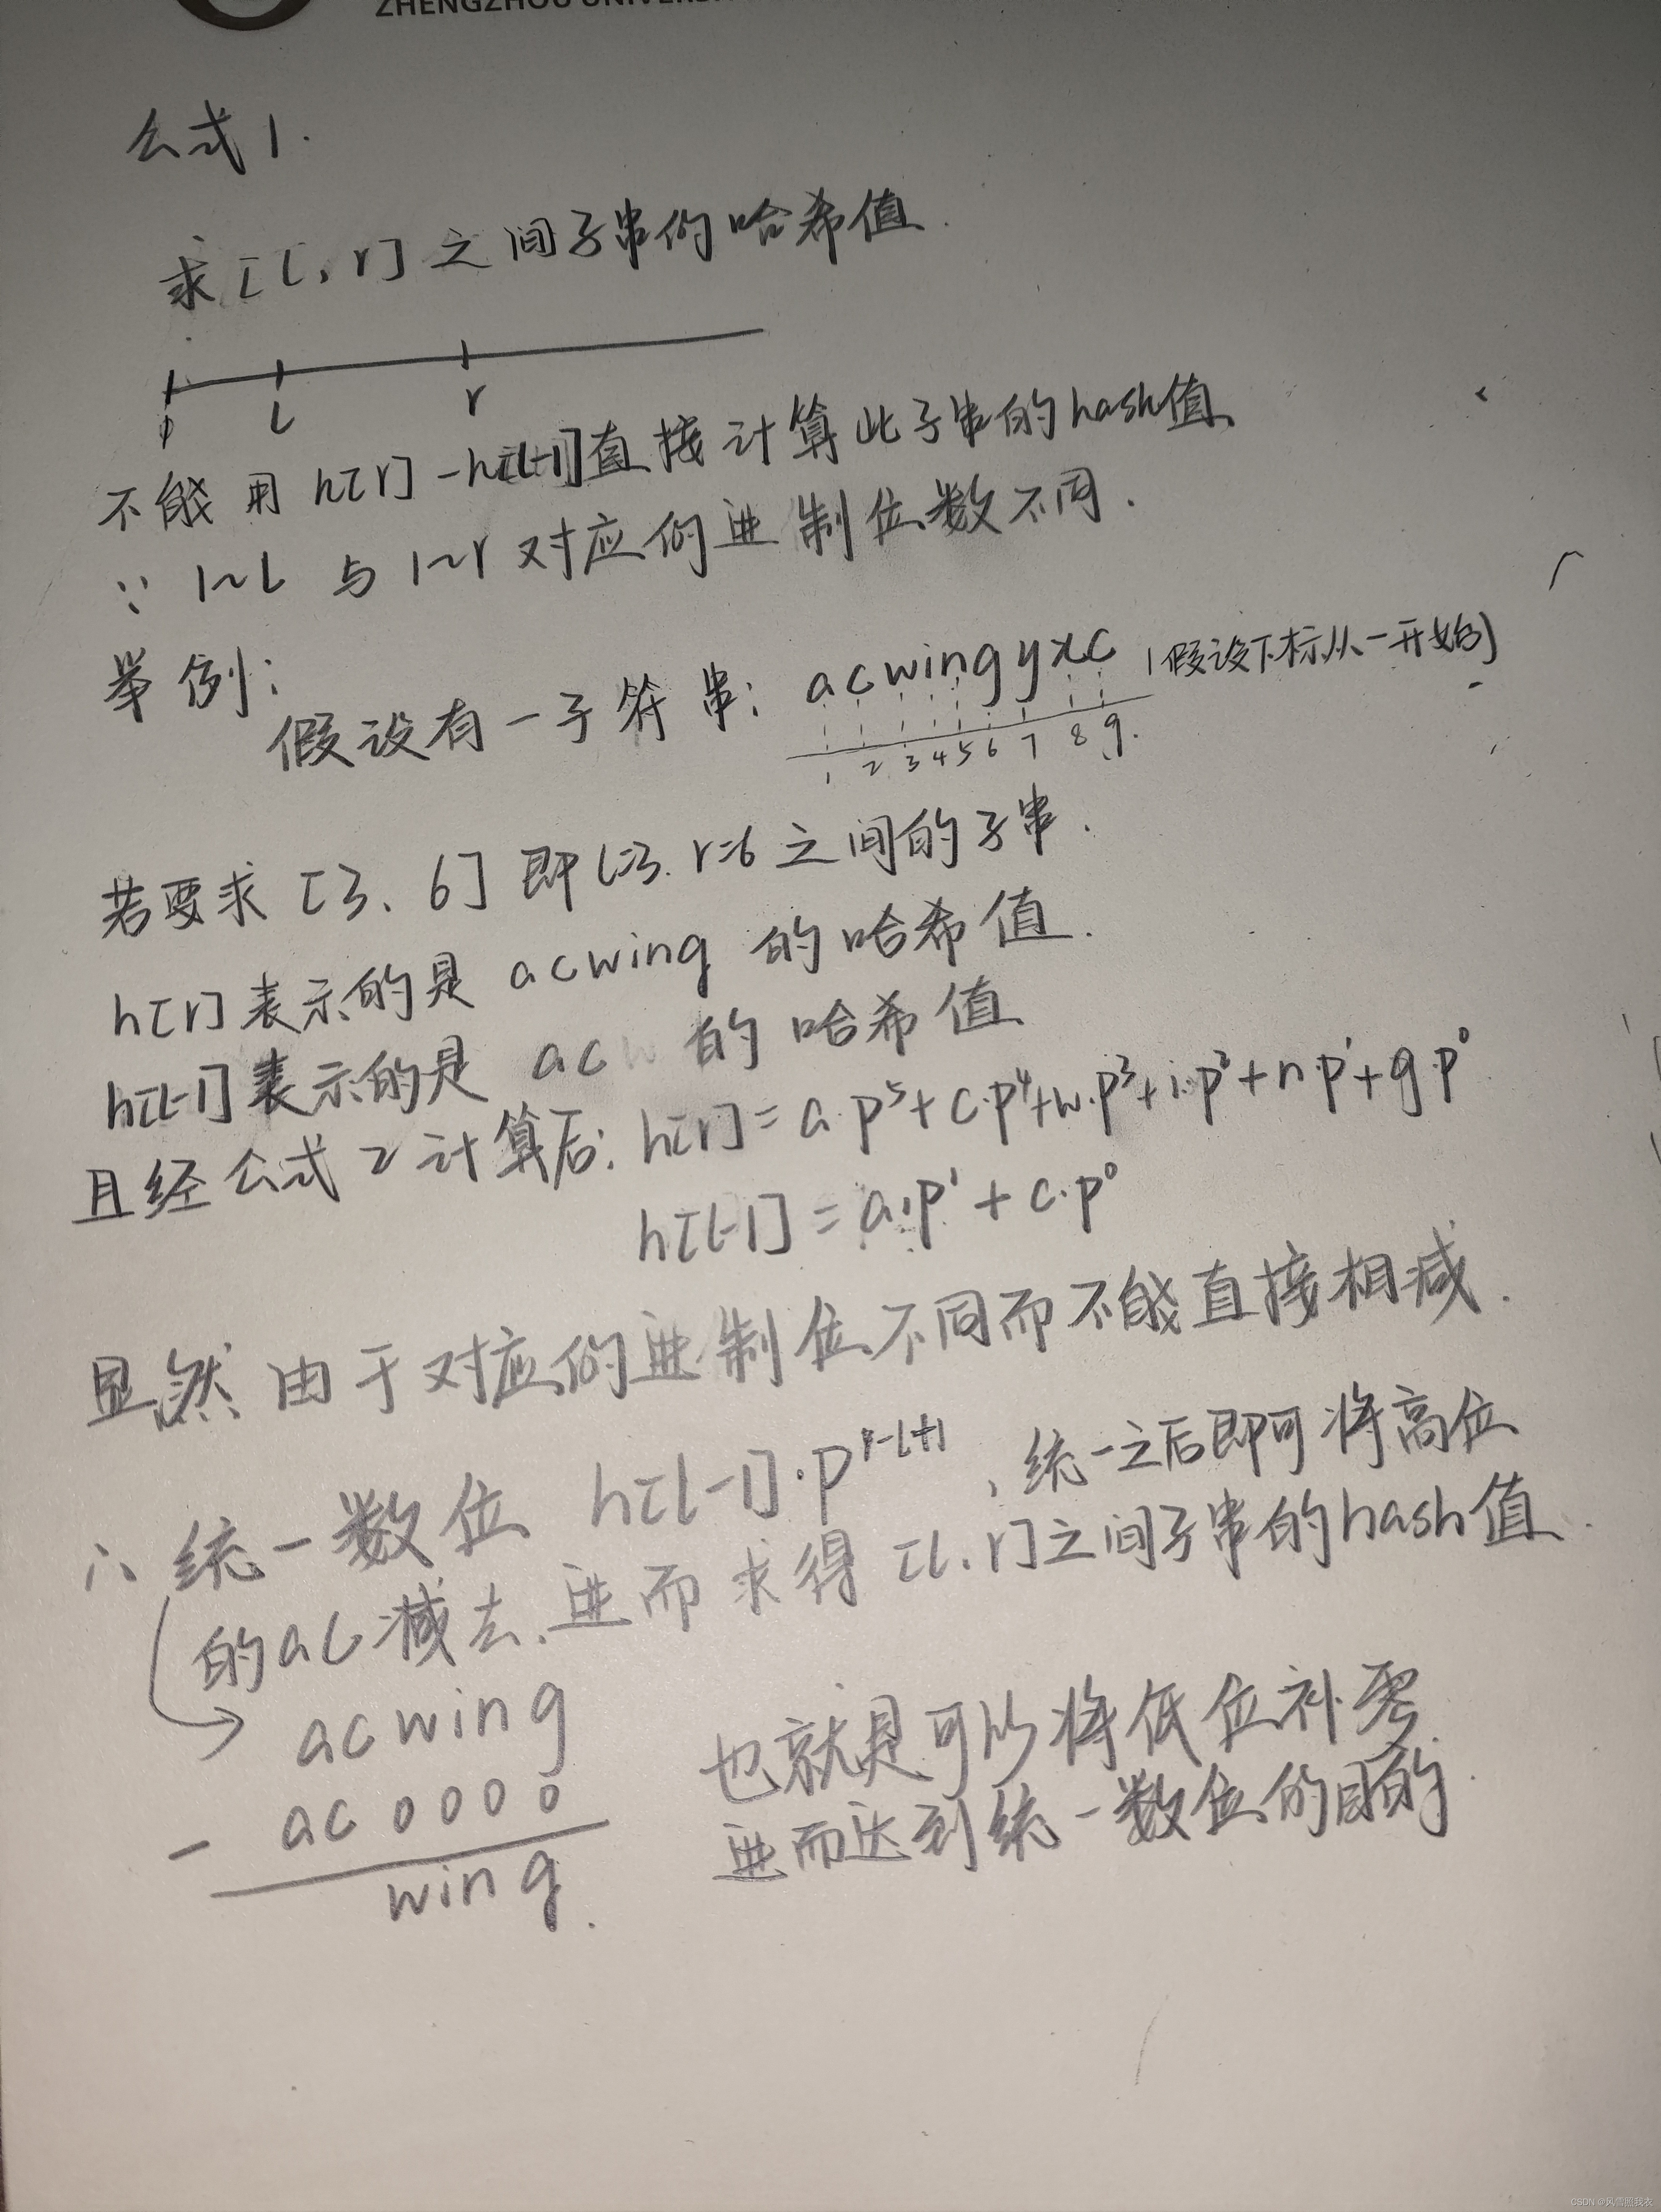 ZHENGZHOU UNIVERS
公式1.
求[l,r]之间子串的哈希值.
l r
不能用h[r]-h[l-1]直接计算此子串的hash值,
∵ 1~l 与 1~r 对应的进制位数不同.
举例:
假设有一子符串: acwingyxc (假设下标从一开始)
1 2 3 4 5 6 7 8 9.
若要求[3、6]即l=3. r=6之间的子串.
h[r]表示的是 acwing 的哈希值.
h[l-1]表示的是 ac 的哈希值
且经公式2计算后: h[r]=a·p⁵+c·p⁴+w·p³+i·p²+n·p¹+g·p⁰
h[l-1]=a·p¹+c·p⁰
显然由于对应的进制位不同而不能直接相减.
∴ 统一数位 h[l-1]·pʳ⁻ˡ⁺¹,统一之后即可将高位
的ac减去,进而求得[l,r]之间子串的hash值.
acwing
- ac0000
wing.
也就是可以将低位补零
进而达到统一数位的目的.
CSDN @风雪照我衣